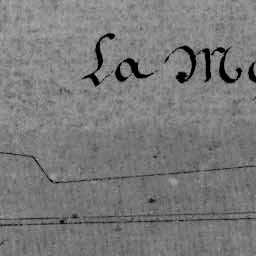 La M